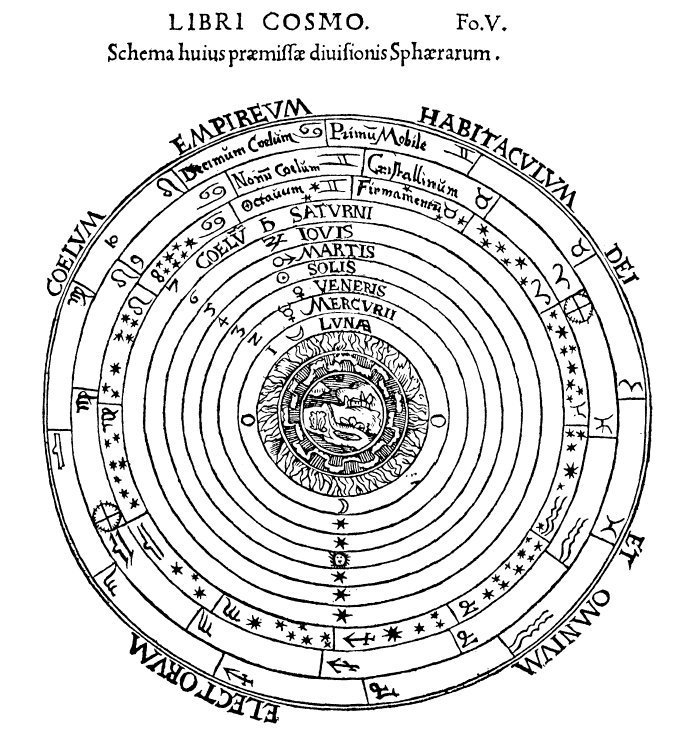 LIBRI COSMO. Fo.V.
Schema huius præmiſſæ diuiſionis Sphærarum .
COELVM EMPIREVM HABITACVLVM DEI ET OMNIVM ELECTORVM
Decimum Coelum Primũ Mobile
Nonũ Coelum Cristallinum
Octauum Firmamentũ
COELV̄ SATVRNI
IOVIS
MARTIS
SOLIS
VENERIS
MERCVRII
LVNAE
8 7 6 5 4 3 2 1